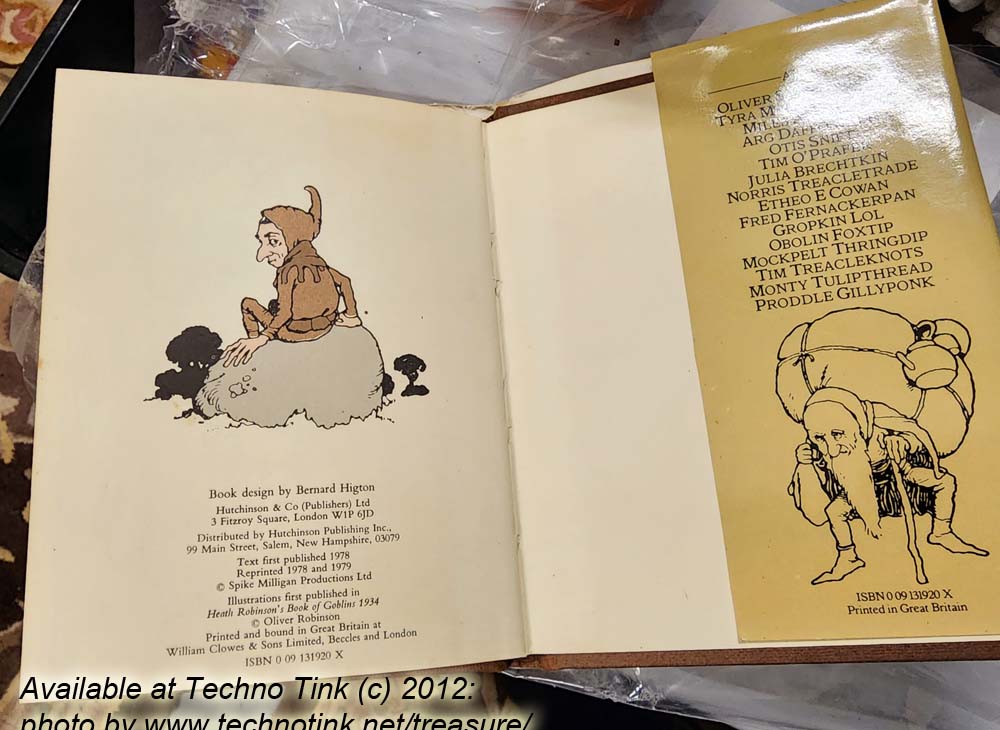 Book design by Bernard Higton
Hutchinson & Co (Publishers) Ltd
3 Fitzroy Square, London W1P 6JD
Distributed by Hutchinson Publishing Inc.,
99 Main Street, Salem, New Hampshire, 03079
Text first published 1978
Reprinted 1978 and 1979
© Spike Milligan Productions Ltd
Illustrations first published in
Heath Robinson's Book of Goblins 1934
© Oliver Robinson
Printed and bound in Great Britain at
William Clowes & Sons Limited, Beccles and London
ISBN 0 09 131920 X
OLIVER
TYRA
ARG
OTIS
TIM O'PRAFER
JULIA BRECHTKIN
NORRIS TREACLETRADE
ETHEO E COWAN
FRED FERNACKERPAN
GROPKIN LOL
OBOLIN FOXTIP
MOCKPELT THRINGDIP
TIM TREACLEKNOTS
MONTY TULIPTHREAD
PRODDLE GILLYPONK
ISBN 0 09 131920 X
Printed in Great Britain
Available at Techno Tink (c) 2012:
photo by www.technotink.net/treasure/